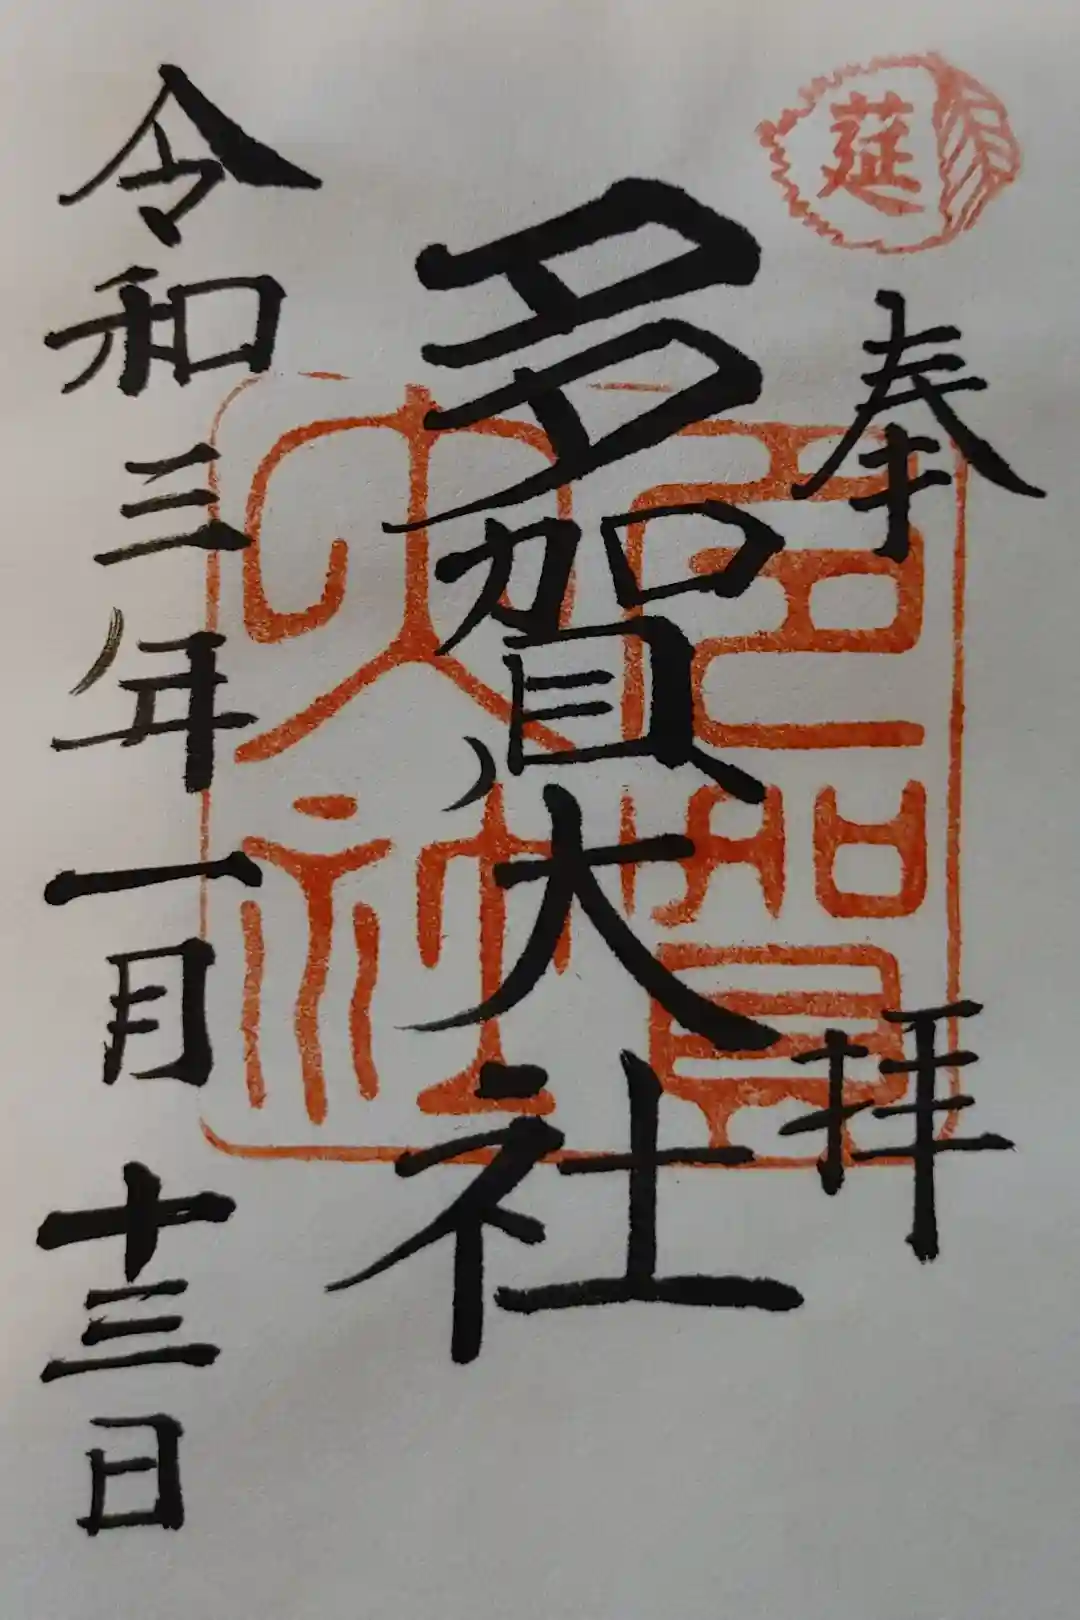 莚
奉拝
多賀大社
多賀大社
令和三年一月十三日